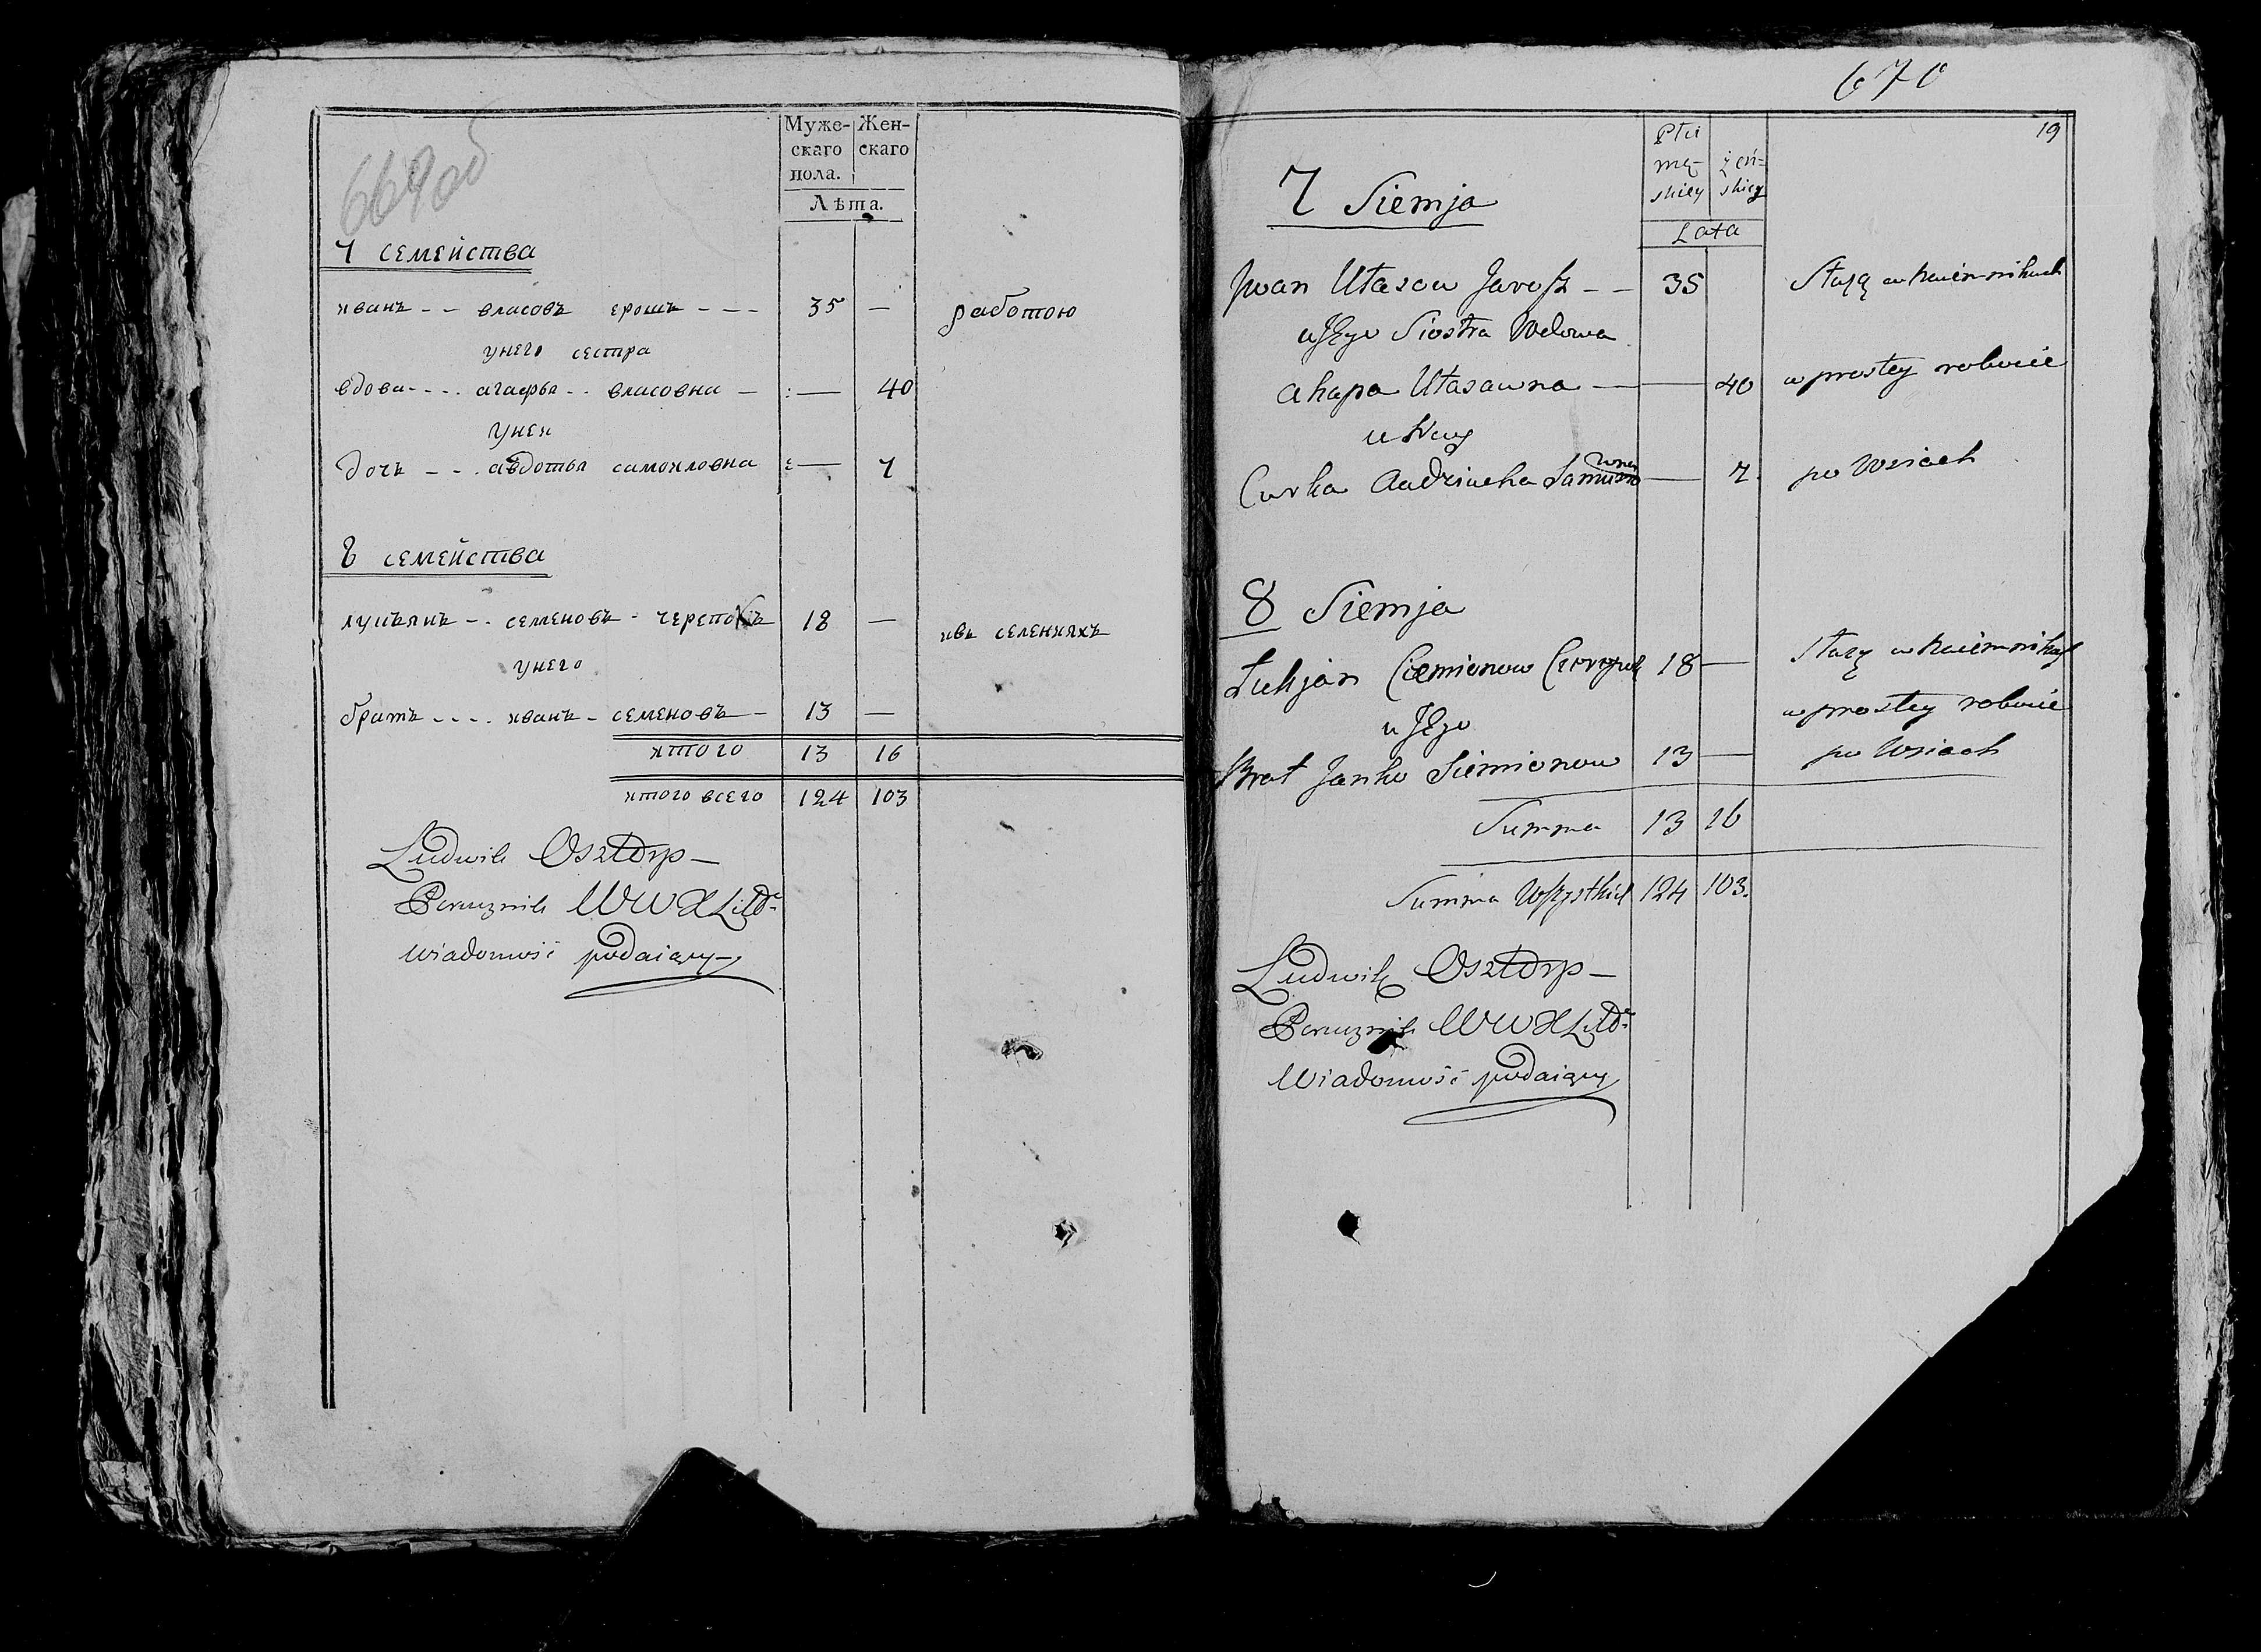 669об
Муже-
скаго
пола.
Жен-
скаго
Лѣта.
7 семейства
иванъ -- власовъ ерошъ --- 35 — работою
унего сестра
вдова---- агафья -- власовна — — 40
унея
дочь -- авдотья самоиловна — 7
8 семейства
лукьянъ -- семеновъ - черепокъ 18 — ивъ селенияхъ
унего
братъ ---- иванъ - семеновъ — 13 —
итого 13 16
итого всего 124 103
Ludwik Osztorp
Porucznik WWXLitd
Wiadomość podaiący
670
19
Płci
mę-
skiey
żeń-
skiey
Lata
7 Siemja
Jwan Ułasow Jarosz -- 35 Służą w
u Jego Siostra Wdowa
Ahapa Ułasawna — — 40 w prostey robocie
u Niey
Curka Audziucha Samuno
wna — 7 po Wsiach
8 Siemja
Łukjan Ciemionow 18 — Służą w
u Jego w prostey robocie
Brat Janko Siemionow 13 — po Wsiach
Summa 13 16
Summa Wszystkich 124 103.
Ludwik Osztorp
Porucznik WWXLitd
Wiadomość podaiący